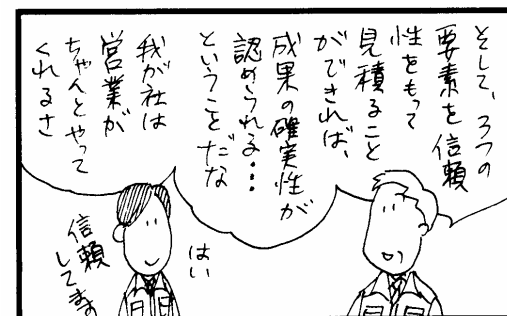 そして、3つの
要素を信頼
性をもって
見積ること
ができれば、
成果の確実性が
認められる・・・
ということだな
我が社は
営業が
ちゃんとやって
くれるさ
はい
信頼
してます